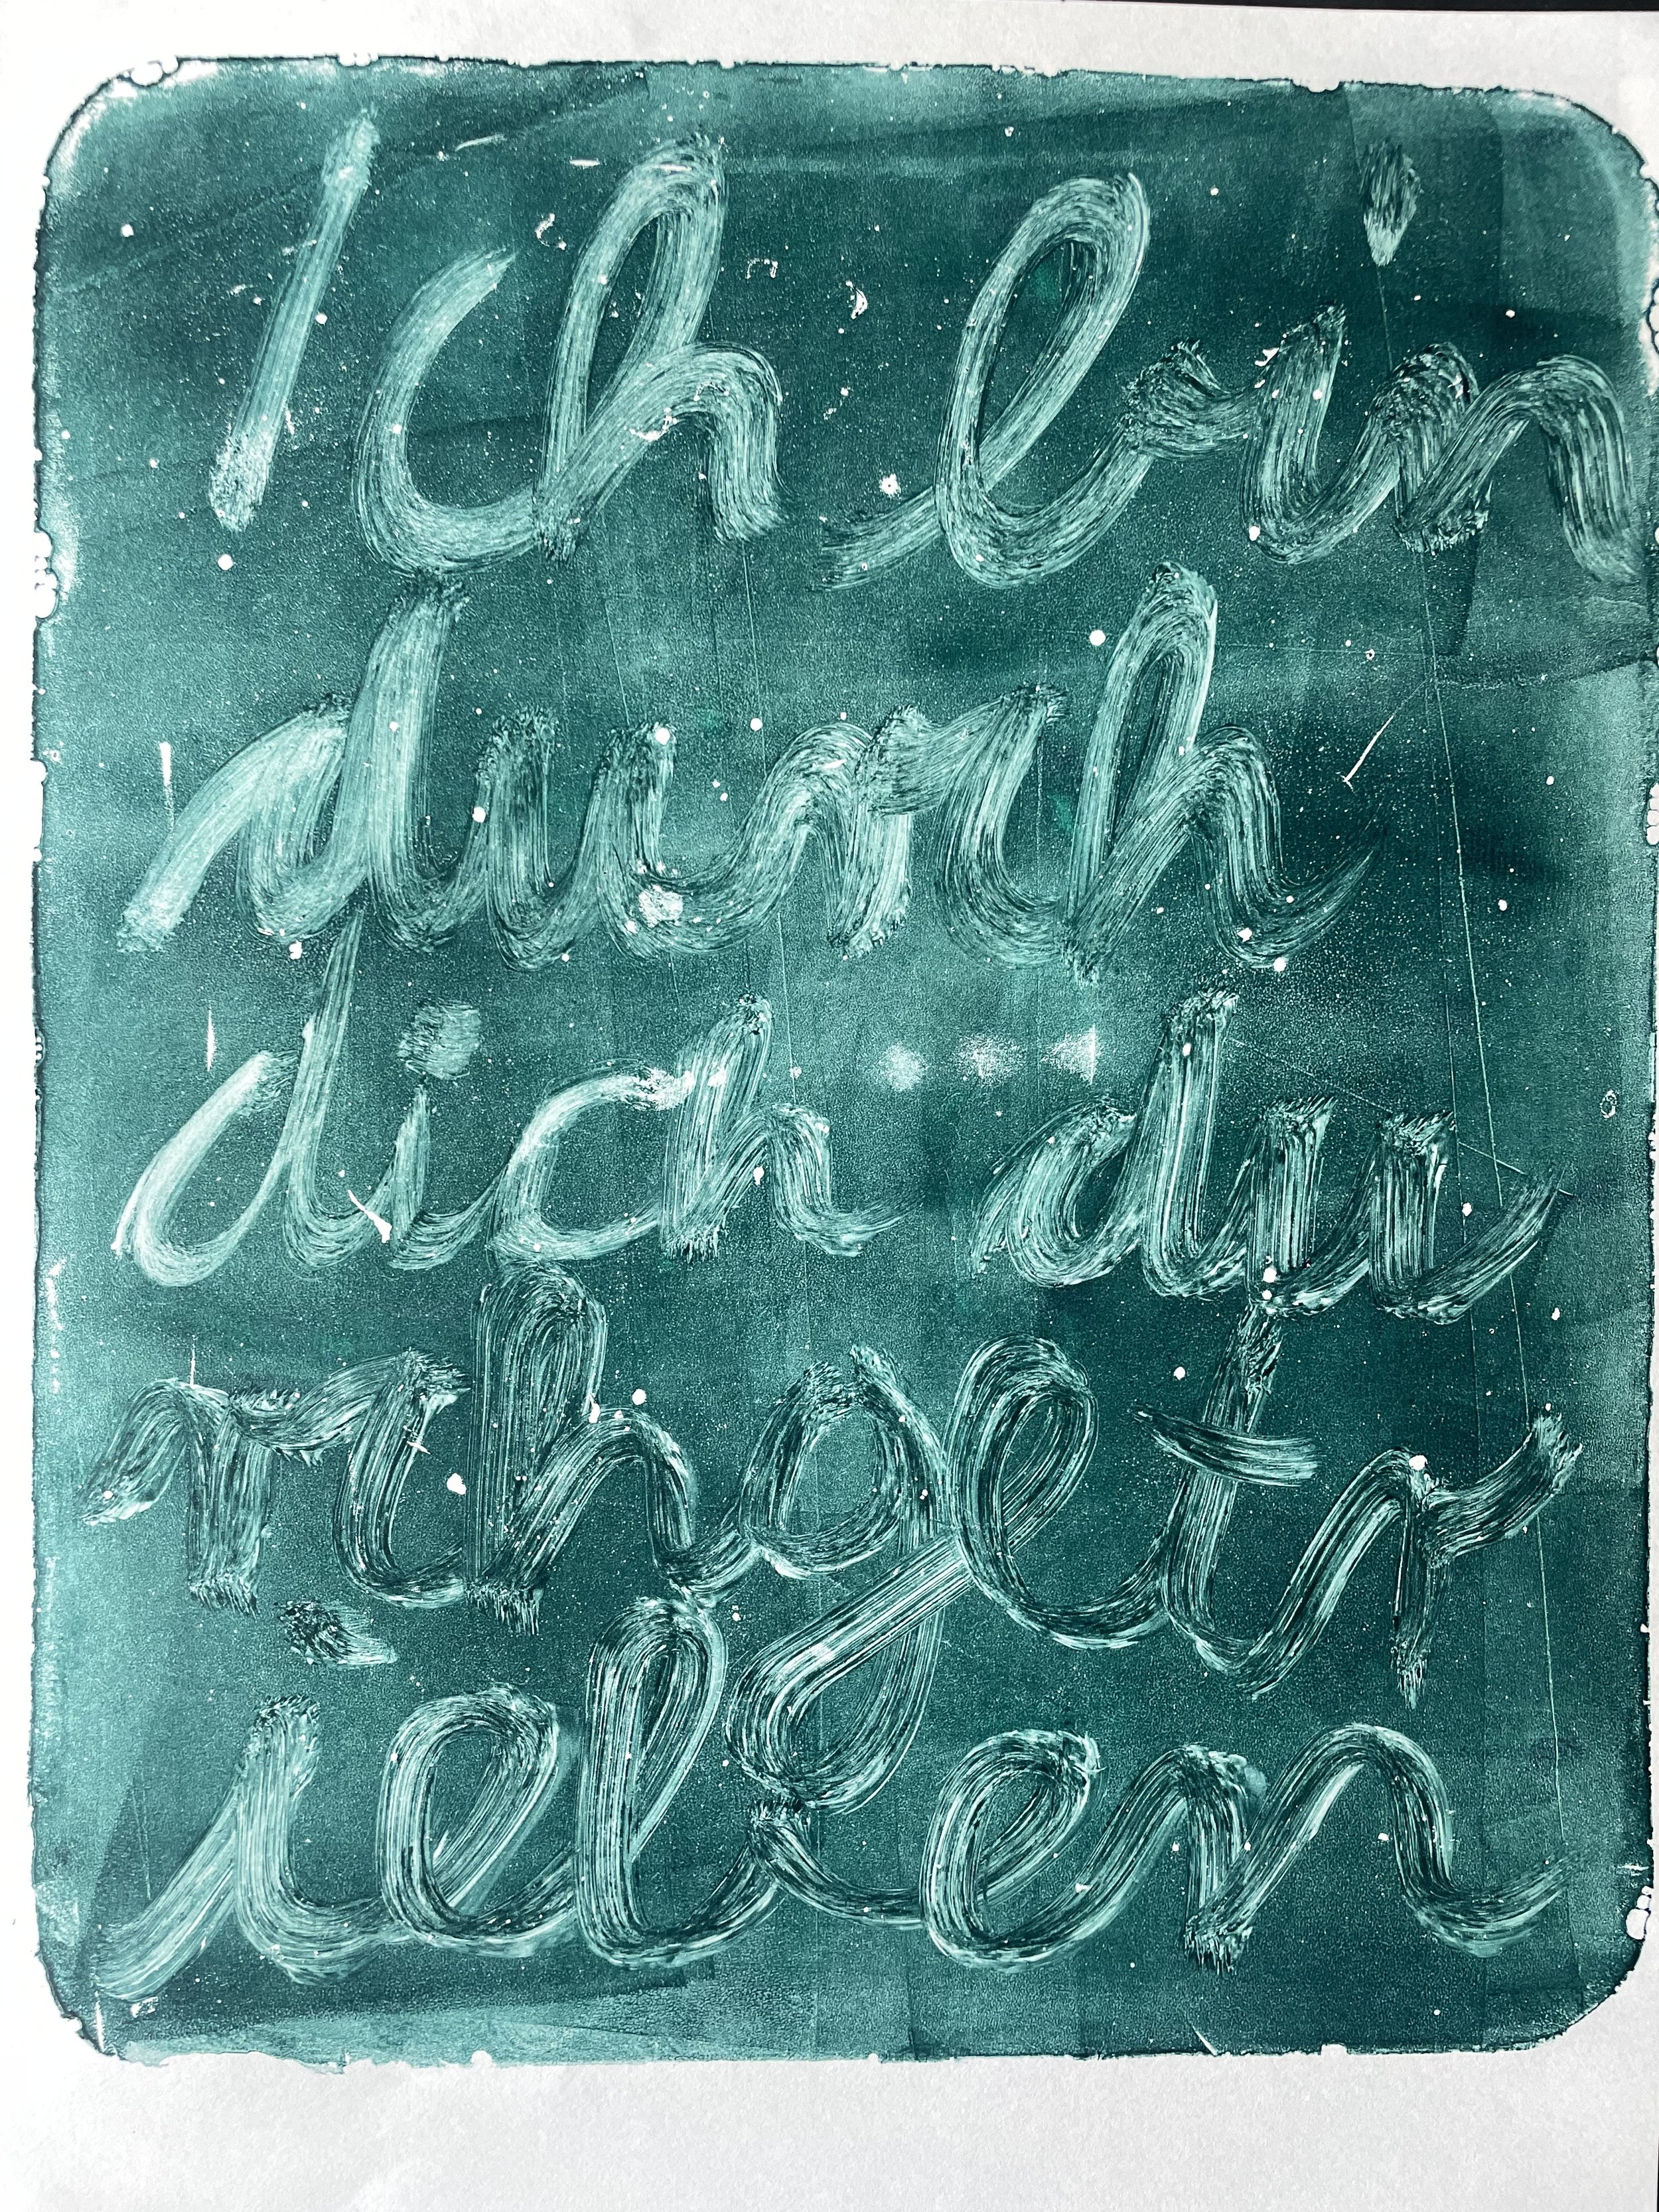 Ich bin
durch
dich du
rchgetr
ieben